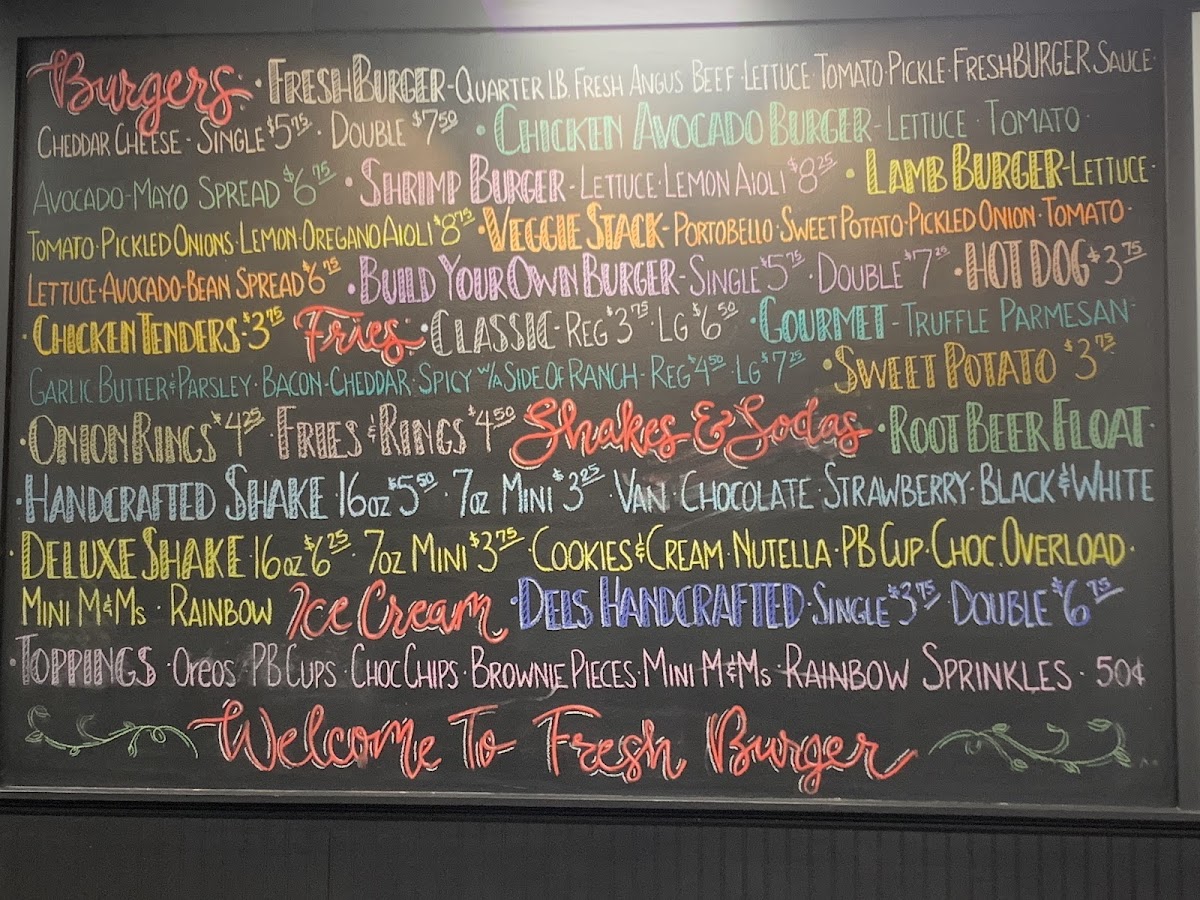 Burgers · FRESHBURGER - QUARTER LB. FRESH ANGUS BEEF · LETTUCE · TOMATO · PICKLE · FRESHBURGER SAUCE ·
CHEDDAR CHEESE - SINGLE $5.75 · DOUBLE $7.50 · CHICKEN AVOCADO BURGER - LETTUCE · TOMATO ·
AVOCADO-MAYO SPREAD $6.75 · SHRIMP BURGER - LETTUCE · LEMON AIOLI $8.25 · LAMB BURGER - LETTUCE ·
TOMATO · PICKLED ONIONS · LEMON-OREGANO AIOLI $8.75 · VEGGIE STACK - PORTOBELLO · SWEET POTATO · PICKLED ONION · TOMATO ·
LETTUCE · AVOCADO-BEAN SPREAD $6.75 · BUILD YOUR OWN BURGER - SINGLE $5.75 · DOUBLE $7.25 · HOT DOG $3.75
· CHICKEN TENDERS - $3.75 Fries · CLASSIC - REG $3.75 · LG $6.50 · GOURMET - TRUFFLE PARMESAN ·
GARLIC BUTTER & PARSLEY · BACON-CHEDDAR · SPICY W/A SIDE OF RANCH - REG $4.50 · LG $7.25 · SWEET POTATO $3.75
· ONION RINGS $4.25 · FRIES & RINGS $4.50 Shakes & Sodas · ROOT BEER FLOAT ·
· HANDCRAFTED SHAKE 16oz $5.50 · 7oz MINI $3.25 · VAN · CHOCOLATE · STRAWBERRY · BLACK & WHITE
· DELUXE SHAKE 16oz $6.25 · 7oz MINI $3.75 · COOKIES & CREAM · NUTELLA · PB CUP · CHOC. OVERLOAD ·
MINI M&Ms · RAINBOW Ice Cream · DELS HANDCRAFTED · SINGLE $3.75 · DOUBLE $6.75
· TOPPINGS · OREOS · PB CUPS · CHOC CHIPS · BROWNIE PIECES · MINI M&Ms · RAINBOW SPRINKLES · 50¢
Welcome To Fresh Burger